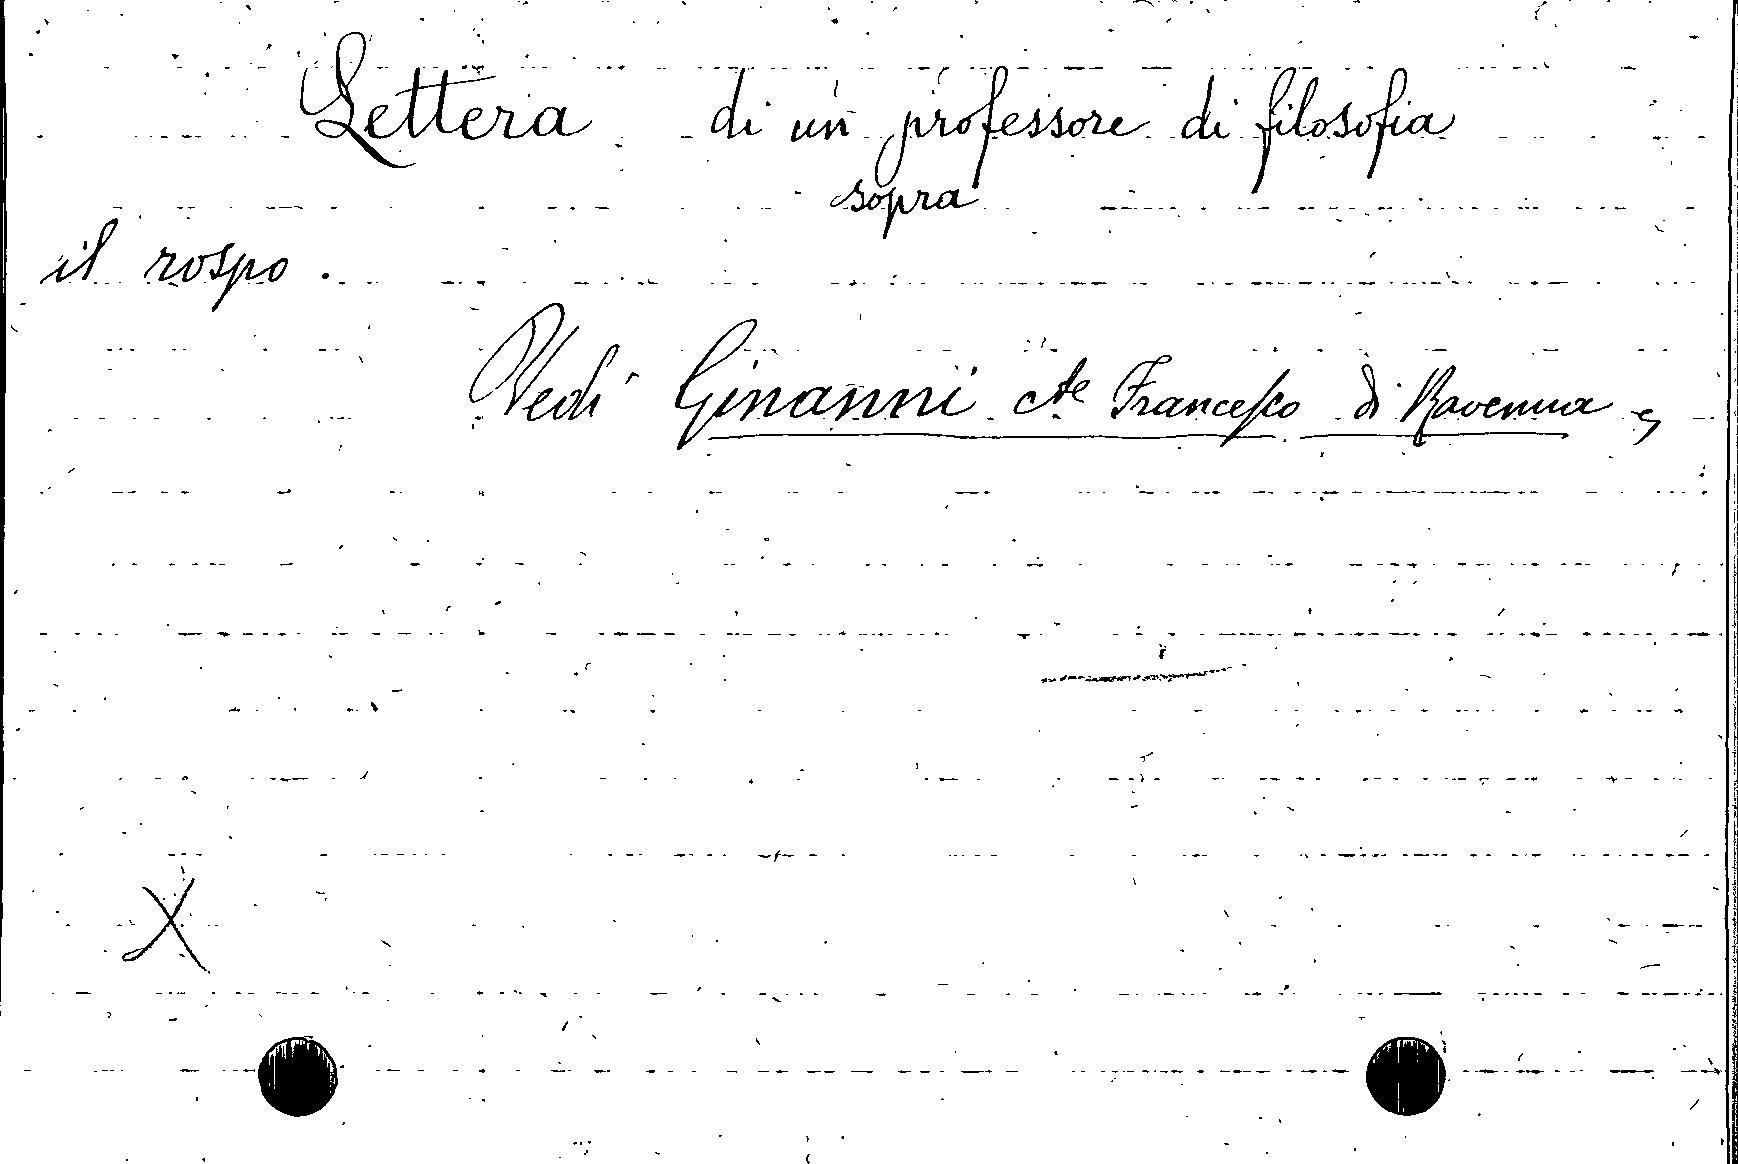 Lettera di un professore di filosofia
sopra
il rospo.
Vedi Ginanni cte Francesco di Ravenna,
X